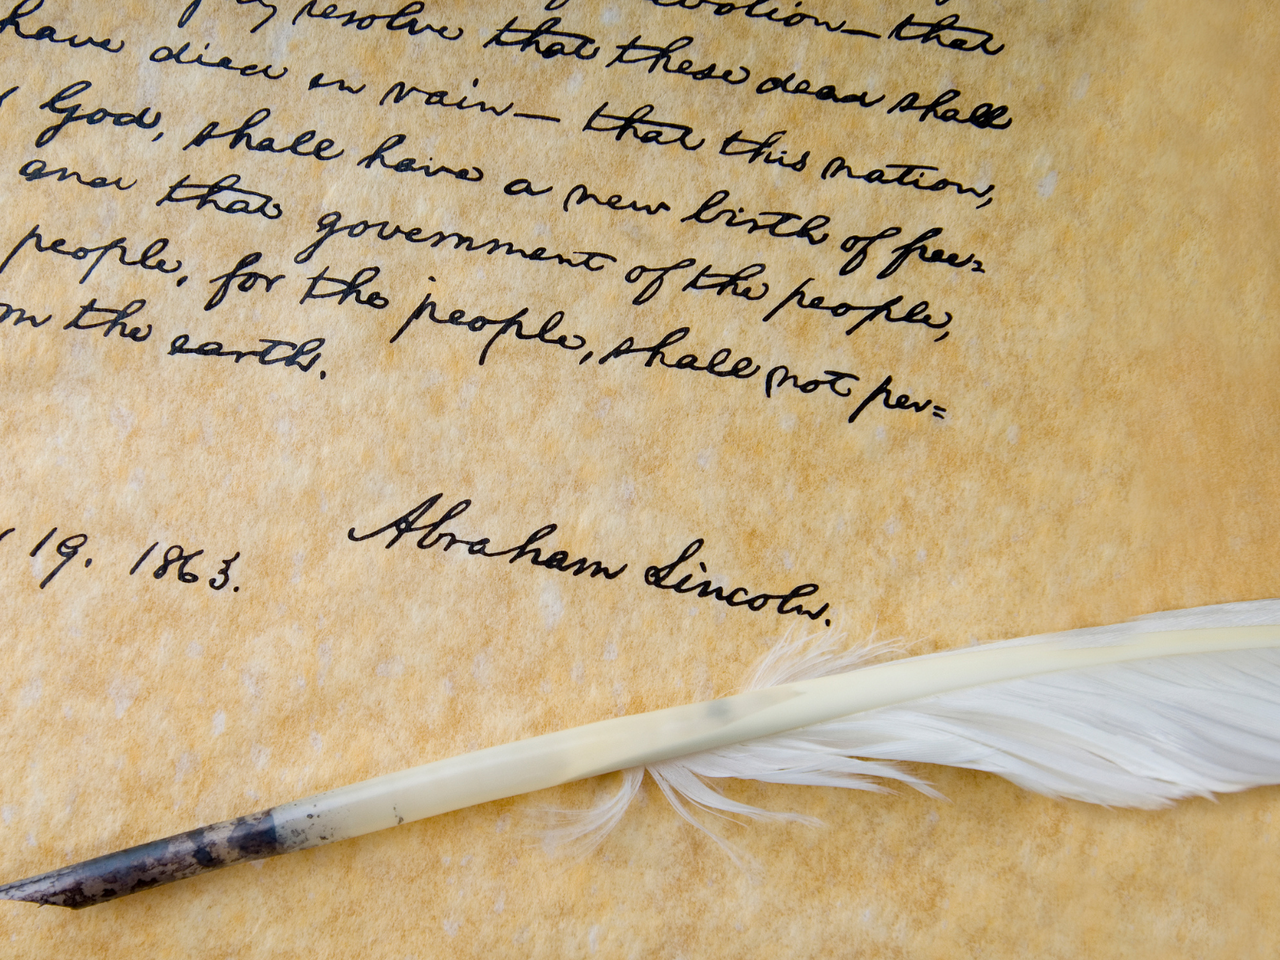 resolve that these dead shall
have died in vain — that this nation,
God, shall have a new birth of free=
and that government of the people,
people, for the people, shall not per=
the earth.
Abraham Lincoln.
19. 1863.